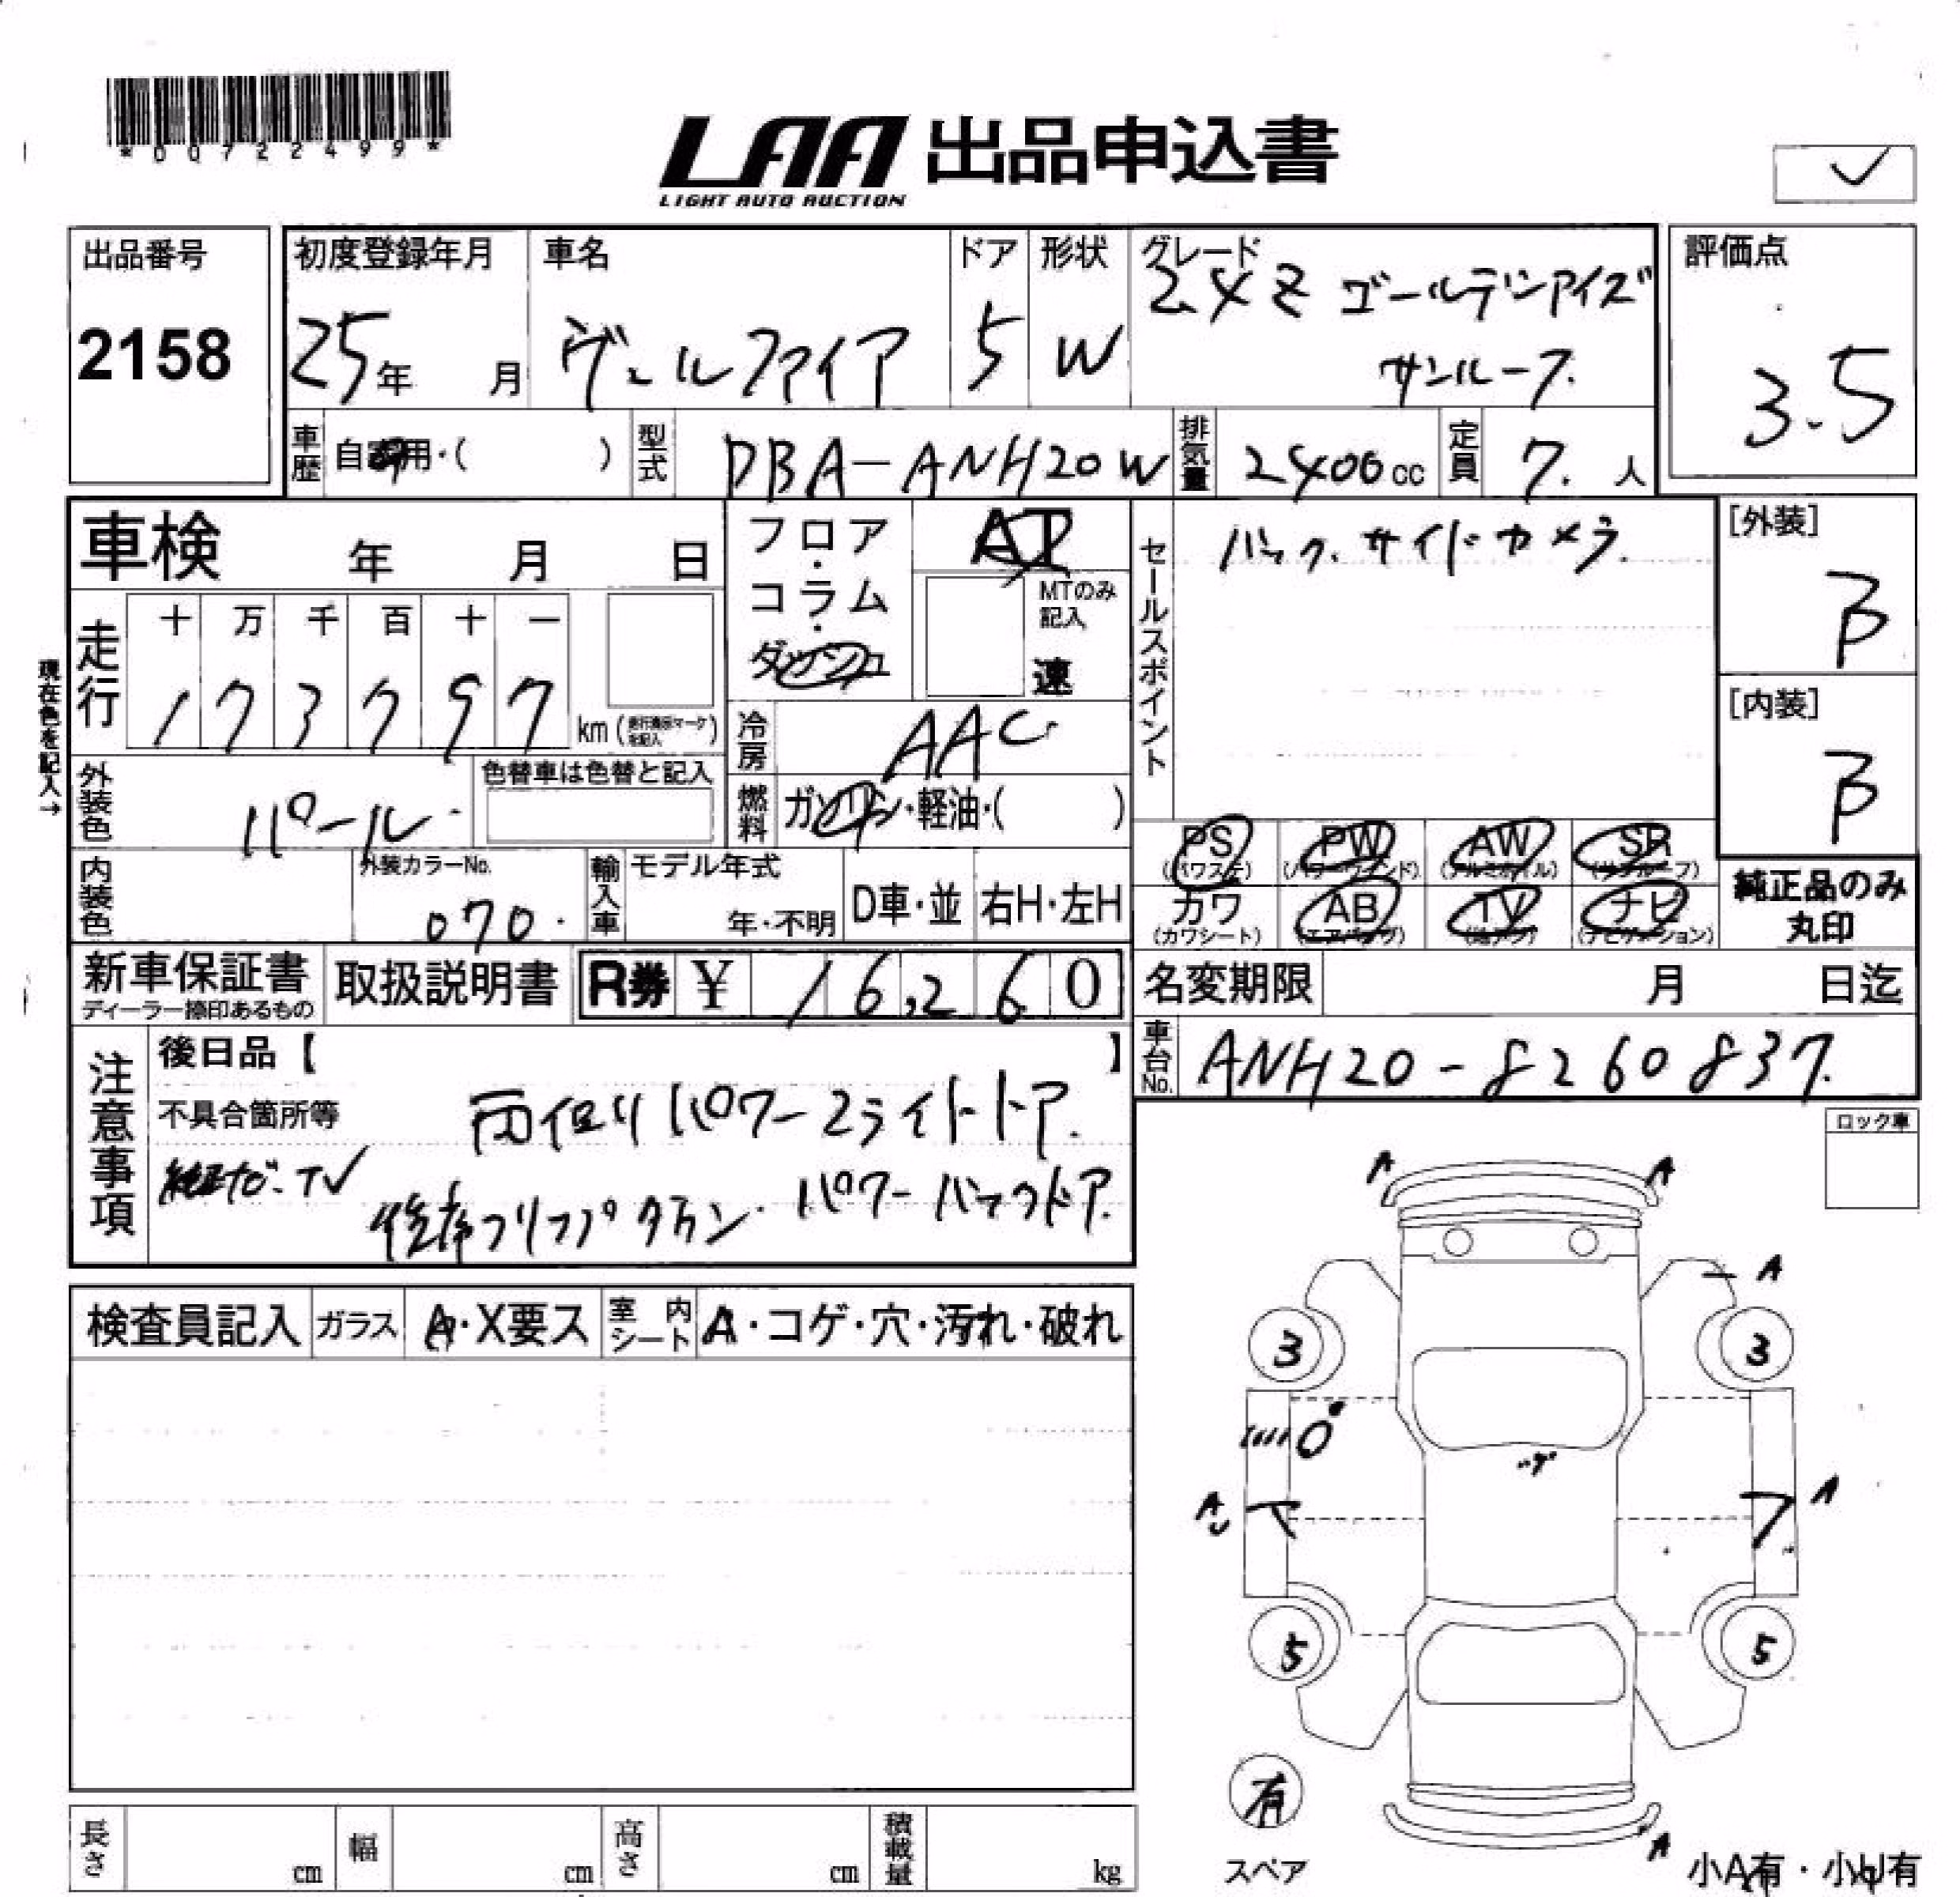 *00722499*
LAA 出品申込書
LIGHT AUTO AUCTION
出品番号
2158
初度登録年月
25年 月
車名
ヴェルファイア
ドア
5
形状
W
グレード
2.4Z ゴールデンアイズ
サンルーフ.
評価点
3.5
車歴 自家用・( )
型式 DBA-ANH20W
排気量 2400cc
定員 7. 人
車検 年 月 日
フロア・コラム・ダッシュ
AT
MTのみ記入
速
セールスポイント
バック. サイドカメラ.
[外装]
B
[内装]
B
現在色を記入→
走行
十 万 千 百 十 一
1 7 3 7 9 7
km (走行換系マークを記入)
冷房 AAC
外装色 パール.
色替車は色替と記入
燃料 ガソリン・軽油・( )
PS (パワステ)
PW (パワーウインド)
AW (アルミホイル)
SR (サンルーフ)
カワ (カワシート)
AB (エアバッグ)
TV (地デジ)
ナビ (ナビゲーション)
純正品のみ丸印
内装色
外装カラーNo.
070.
輸入車
モデル年式
年・不明
D車・並
右H・左H
新車保証書
ディーラー捺印あるもの
取扱説明書
R券 ¥ 16,260
名変期限 月 日迄
車台No. ANH20-8260837.
注意事項
後日品【 】
不具合箇所等
両側パワースライドドア.
純正ナビ.TV
後席フリップダウン. パワーバックドア.
ロック車
検査員記入
ガラス A・X要ス
室内シート A・コゲ・穴・汚れ・破れ
A A
A
3 3
A A
5 5
有
スペア
A
小A有・小U有
長さ cm
幅 cm
高さ cm
積載量 kg